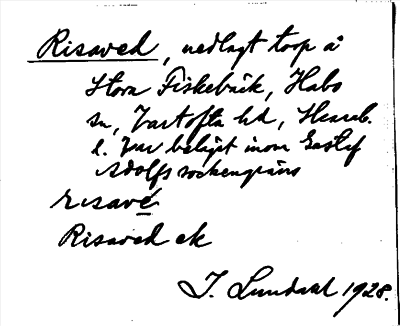 Risaved, nedlagt torp å
Stora Fiskebäck, Habo
sn, Vartofta hd, Skarab.
l. Var beläget inom Gustaf
Adolfs sockengräns
risavé
Risaved ek
J. Lundahl 1928.